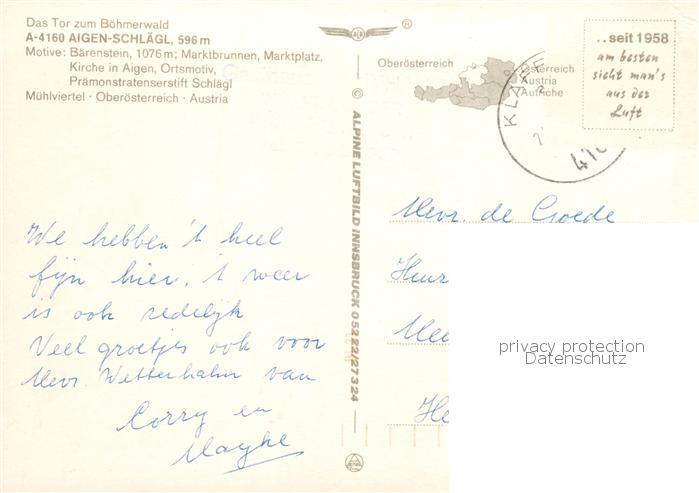 Das Tor zum Böhmerwald
A-4160 AIGEN-SCHLÄGL, 596 m
Motive: Bärenstein, 1076 m; Marktbrunnen, Marktplatz,
Kirche in Aigen, Ortsmotiv,
Prämonstratenserstift Schlägl
Mühlviertel · Oberösterreich · Austria
®
Oberösterreich
Österreich
Austria
Autriche
..seit 1958
am besten
sieht man's
aus der
Luft
KLAFF
© ALPINE LUFTBILD INNSBRUCK 05222/27324
We hebben 't heel
fijn hier, 't weer
is ook redelijk
Veel groetjes ook voor
Mevr. Wetterhahn van
Corry en
Mevr. de Goede
privacy protection
Datenschutz